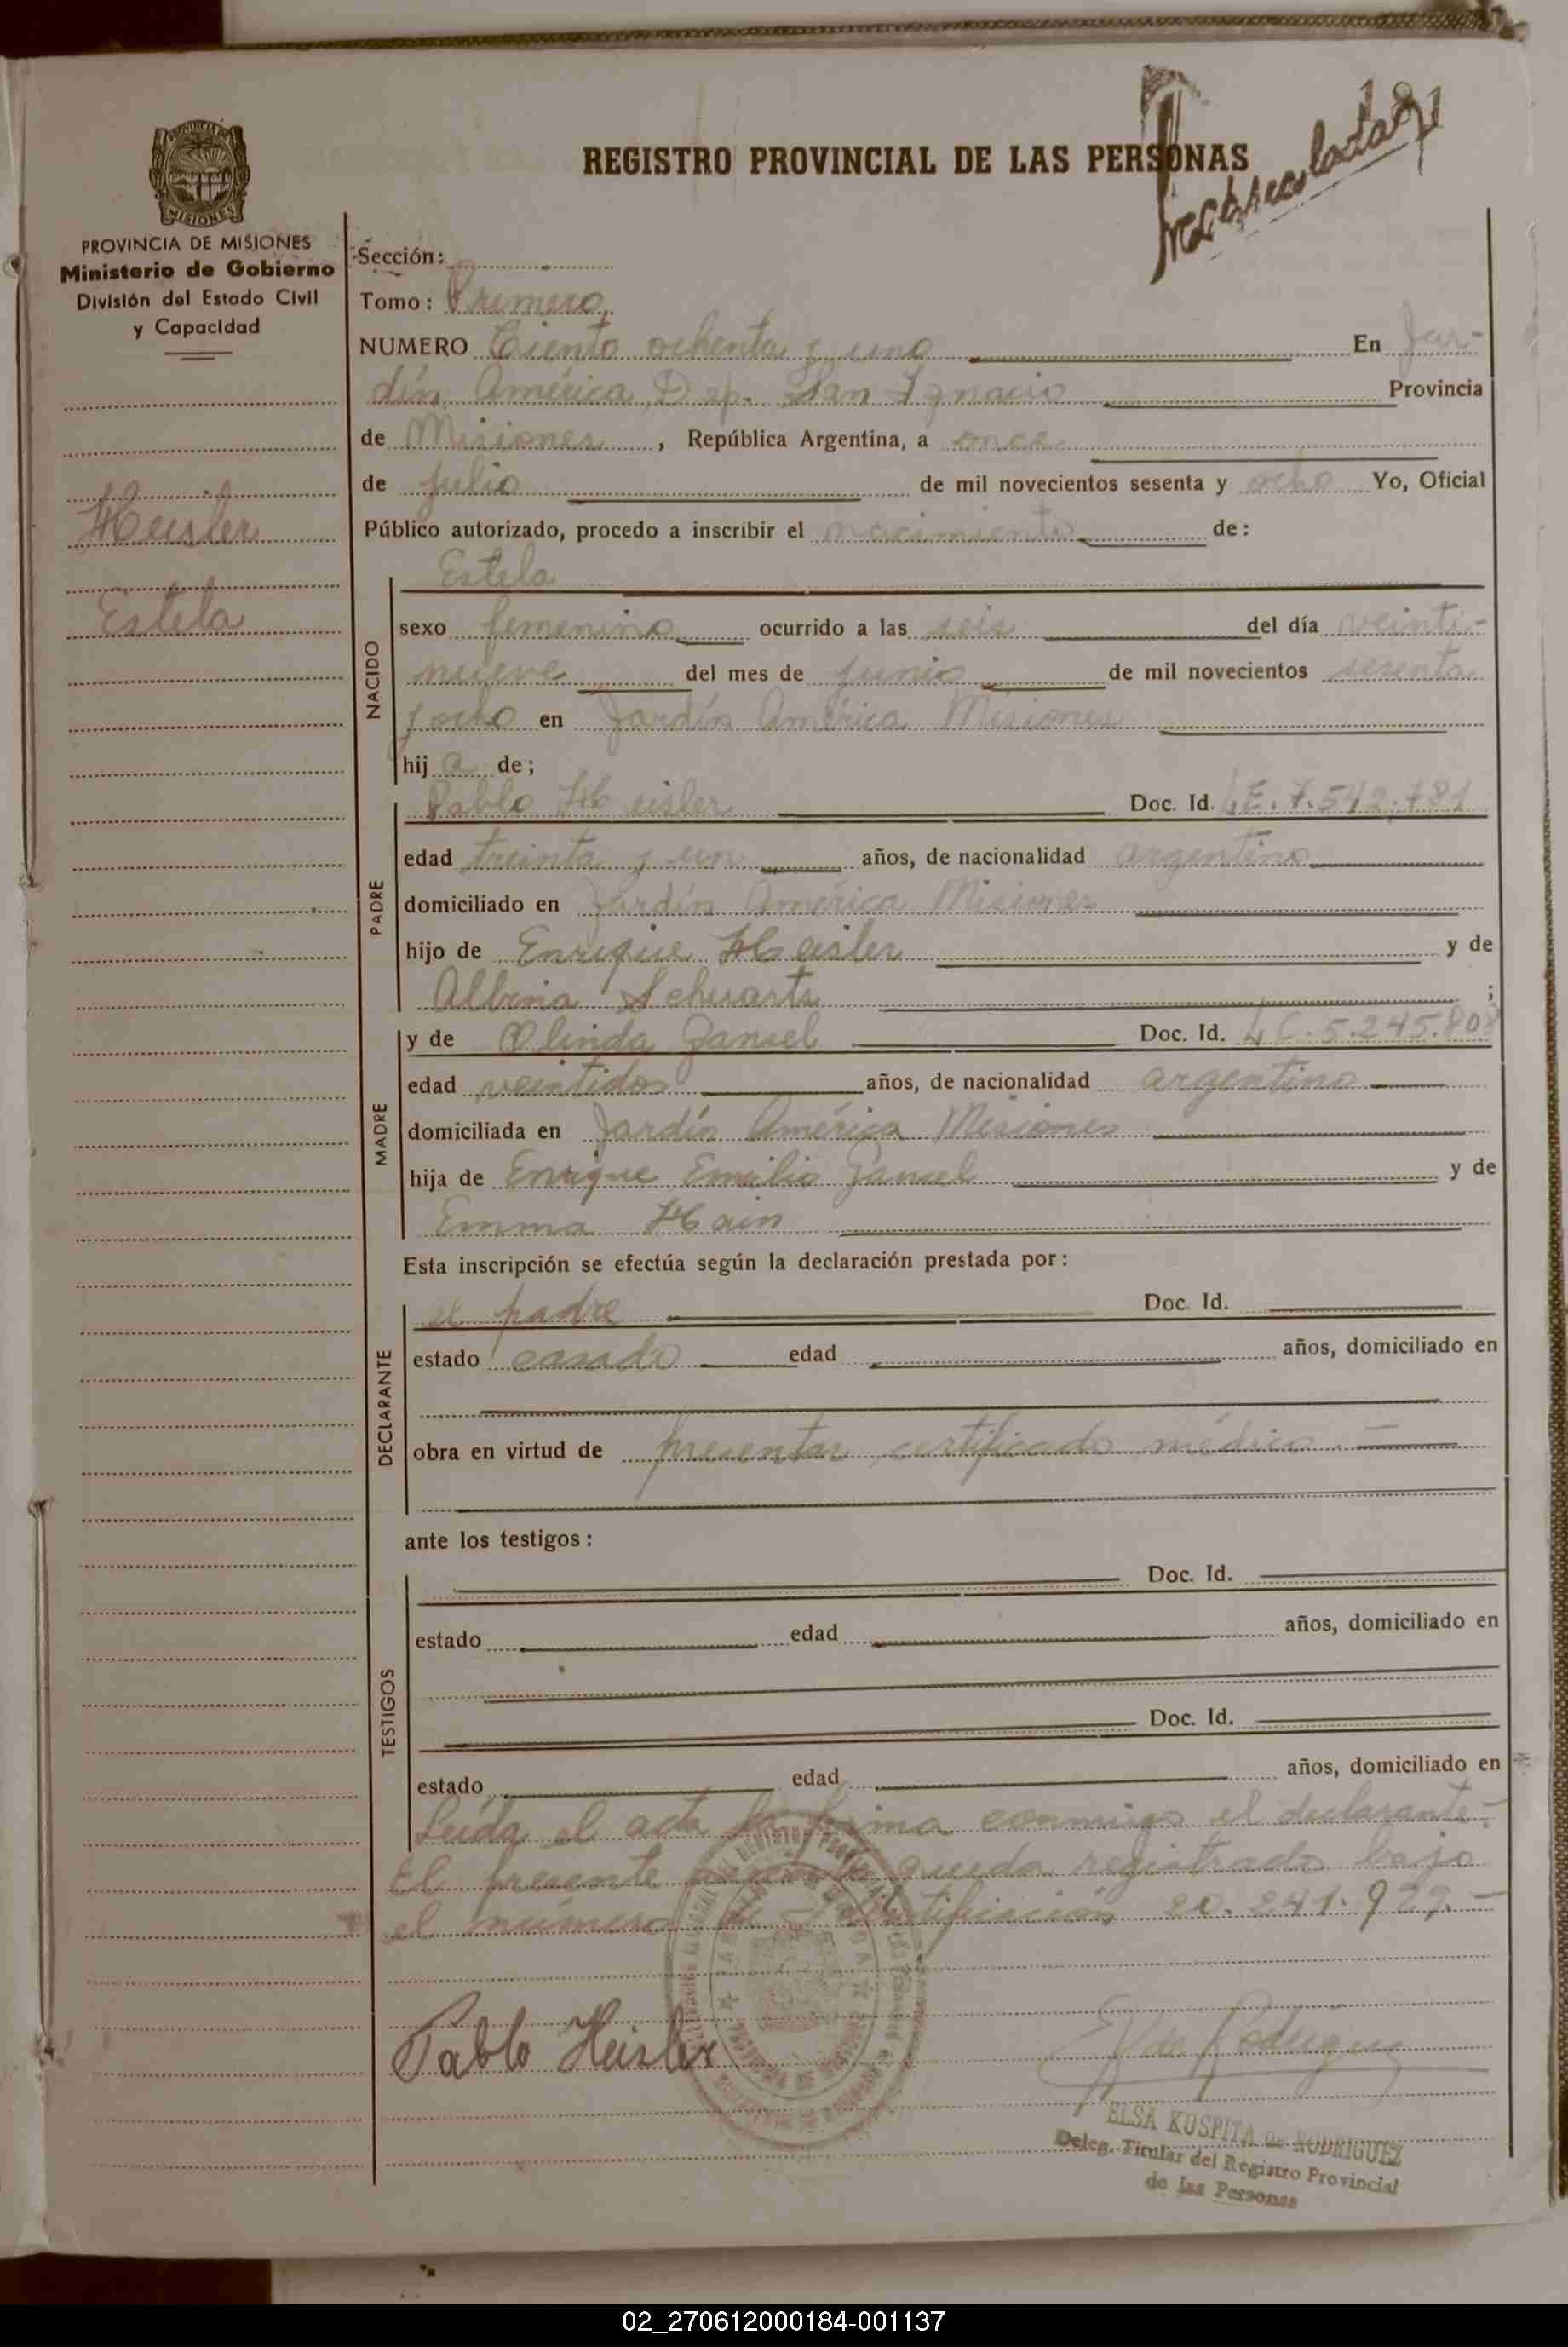 181
REGISTRO PROVINCIAL DE LAS PERSONAS
PROVINCIA DE MISIONES
Ministerio de Gobierno
División del Estado Civil
y Capacidad
Heisler
Estela
Sección:
Tomo: Primero
NUMERO Ciento ochenta y uno En Jar-
dín América, Dep. San Ignacio Provincia
de Misiones, República Argentina, a once
de julio de mil novecientos sesenta y ocho Yo, Oficial
Público autorizado, procedo a inscribir el nacimiento de:
NACIDO
Estela
sexo femenino ocurrido a las seis del día veinti-
nueve del mes de junio de mil novecientos sesenta
y ocho en Jardín América Misiones
hij a de;
PADRE
Pablo Heisler Doc. Id. L.E. 7.542.781
edad treinta y un años, de nacionalidad argentino
domiciliado en Jardín América Misiones
hijo de Enrique Heisler y de
Albina Schuarts ;
MADRE
y de Olinda Doc. Id. L.C. 5.245.808
edad veintidos años, de nacionalidad argentina
domiciliada en Jardín América Misiones
hija de Enrique Emilio y de
Emma Hain
Esta inscripción se efectúa según la declaración prestada por:
DECLARANTE
el padre Doc. Id.
estado casado edad años, domiciliado en
obra en virtud de presentar certificado médico.-
ante los testigos:
TESTIGOS
Doc. Id.
estado edad años, domiciliado en
Doc. Id.
estado edad años, domiciliado en
Leída el acta la firma conmigo el declarante.-
El presente queda registrado bajo
el número de Identificación 20.241.927.-
Pablo Heisler
E K de Rodriguez
ELSA KUSPITA de RODRIGUEZ
Deleg. Titular del Registro Provincial
de las Personas
02_270612000184-001137